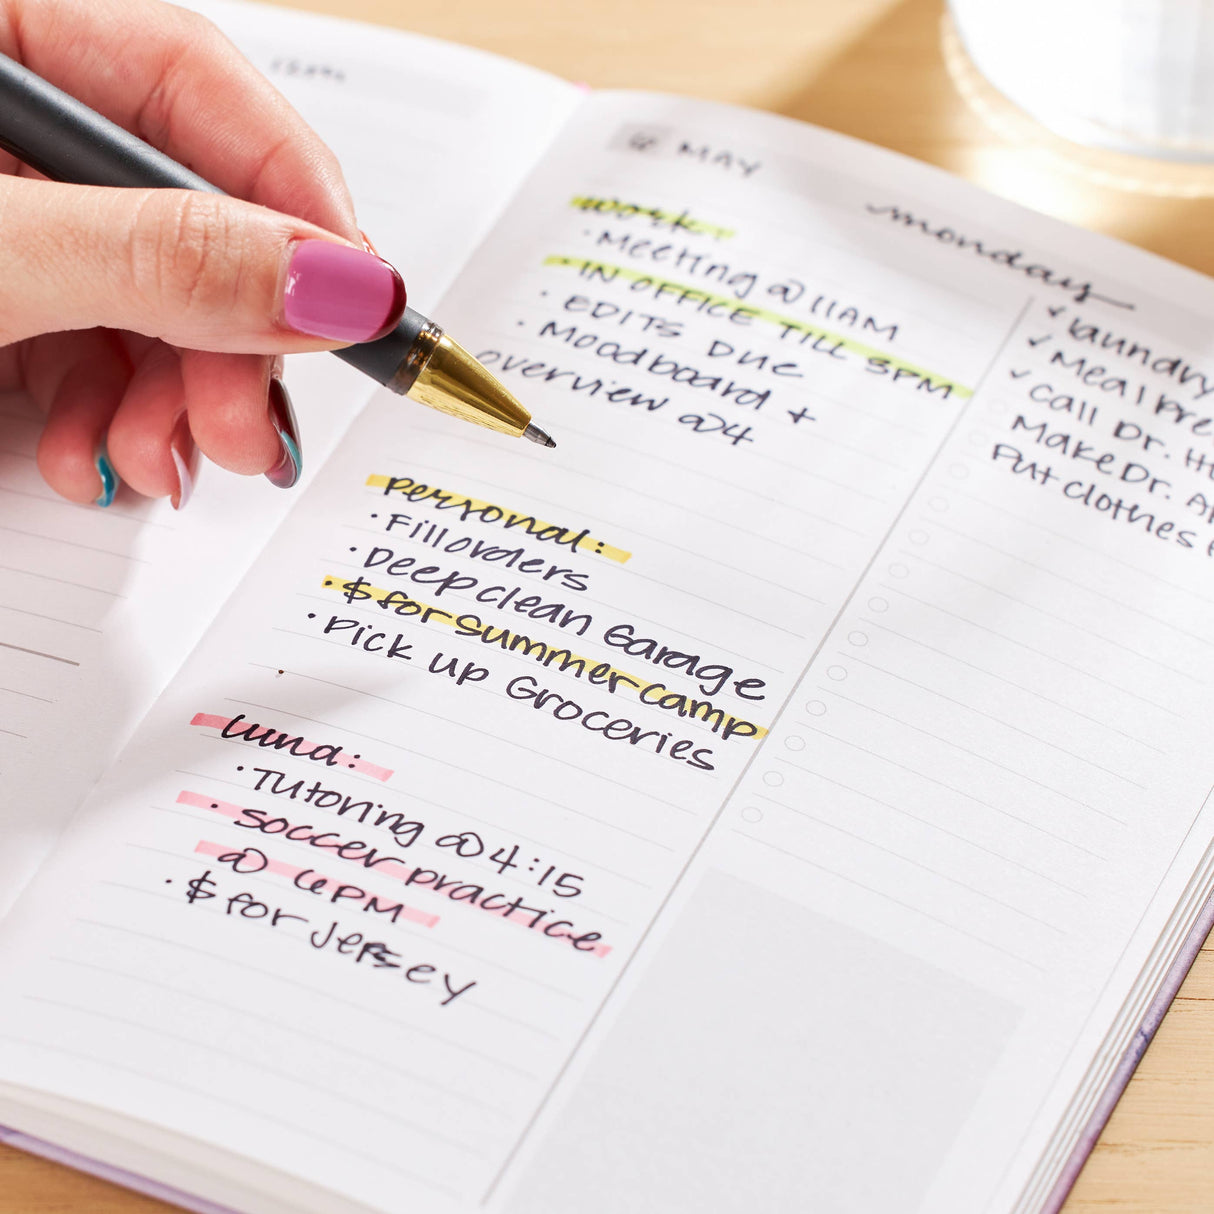 MAY
monday
work:
·Meeting @ 11AM
·IN OFFICE TILL 3PM
·EDITS DUE
·Moodboard +
overview @4
personal:
·Fill orders
·Deep clean Garage
·$ for summer camp
·Pick up Groceries
luna:
·Tutoring @ 4:15
·soccer practice
@ 6PM
·$ for JERSEY
✓ laundry
✓ Meal
✓ Call Dr.
Make Dr.
Put clothes